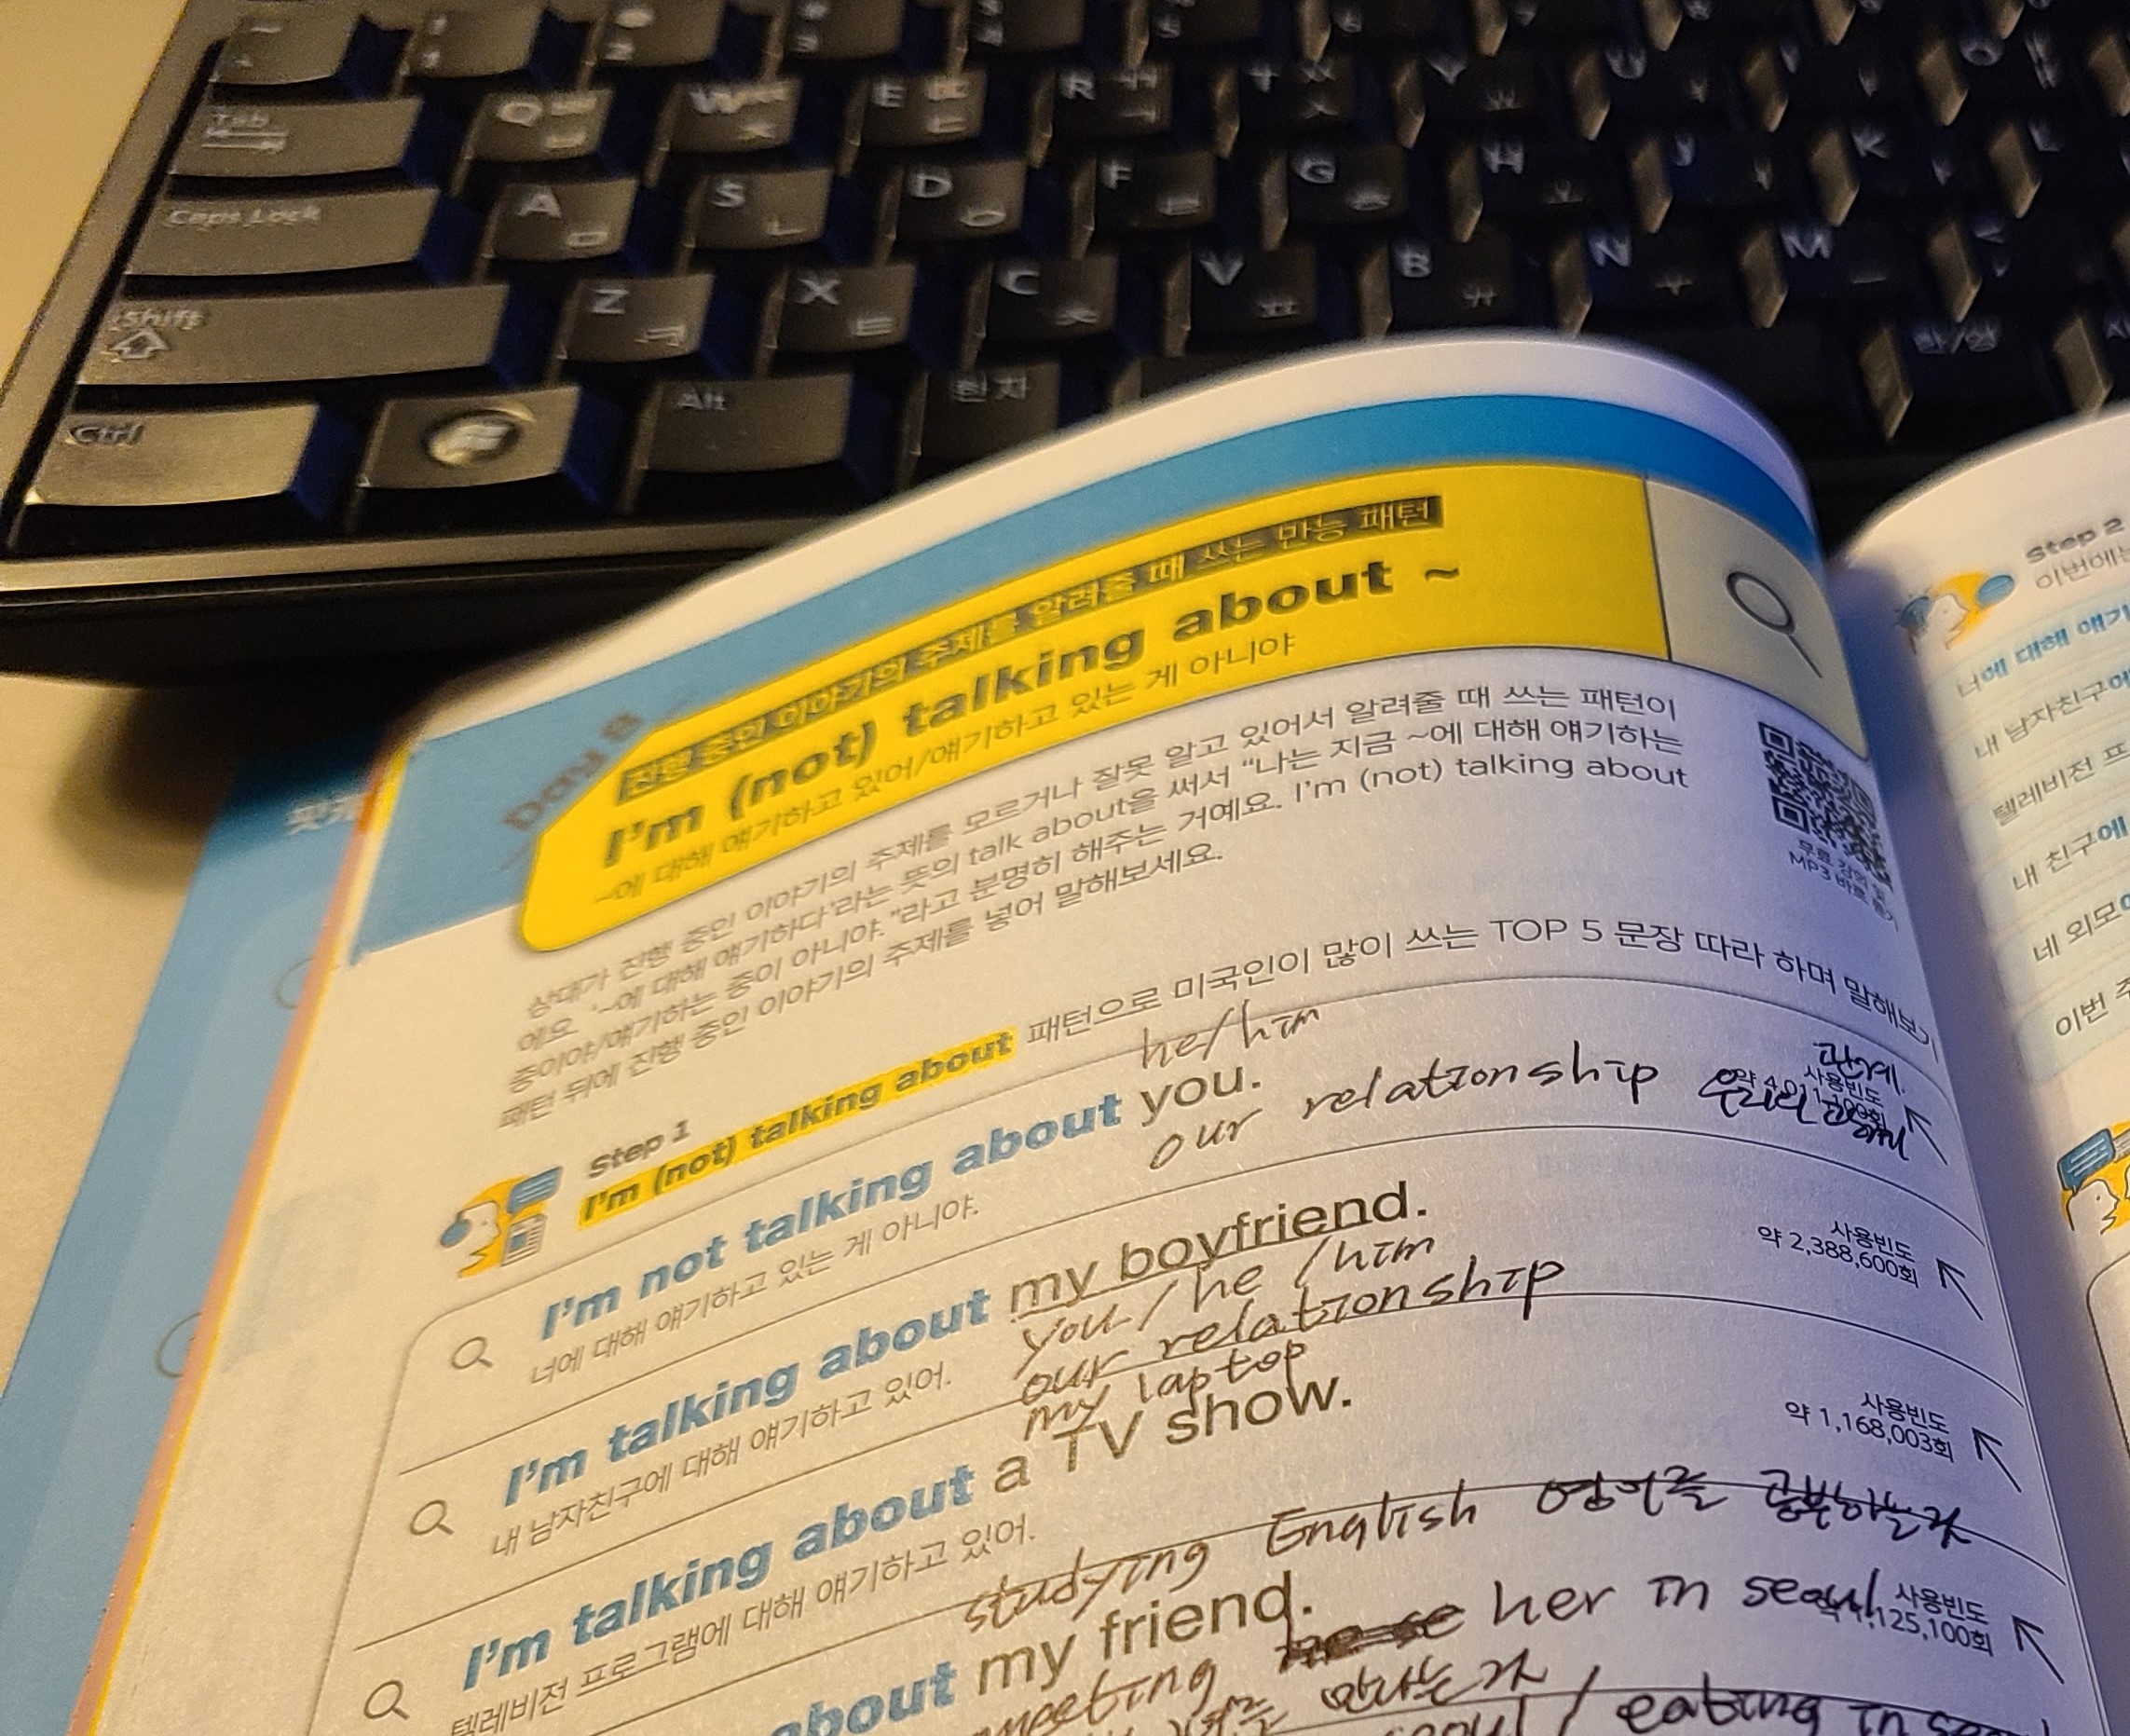 ~ ` ! 1 @ 2 # 3 $ 4
Tab Q ㅃ ㅂ W ㅉ ㅈ E ㄸ ㄷ R ㄲ ㄱ T ㅆ ㅅ Y ㅛ U ㅕ
Caps Lock A ㅁ S ㄴ D ㅇ F ㄹ G ㅎ H ㅗ J ㅓ K ㅏ L ㅣ
Shift Z ㅋ X ㅌ C ㅊ V ㅍ B ㅠ N ㅜ M ㅡ
Ctrl Alt 한자 한/영
Day 8
진행 중인 이야기의 주제를 알려줄 때 쓰는 만능 패턴
I'm (not) talking about ~
~에 대해 얘기하고 있어/얘기하고 있는 게 아니야
상대가 진행 중인 이야기의 주제를 모르거나 잘못 알고 있어서 알려줄 때 쓰는 패턴이
에요. '~에 대해 얘기하다'라는 뜻의 talk about을 써서 "나는 지금 ~에 대해 얘기하는
중이야/얘기하는 중이 아니야."라고 분명히 해주는 거예요. I'm (not) talking about
패턴 뒤에 진행 중인 이야기의 주제를 넣어 말해보세요.
무료 강의 및
MP3 바로 듣기
Step 1
I'm (not) talking about 패턴으로 미국인이 많이 쓰는 TOP 5 문장 따라 하며 말해보기
he/him
I'm not talking about you.
our relationship 우리의 관계
관계.
사용빈도
너에 대해 얘기하고 있는 게 아니야.
I'm talking about my boyfriend.
you / he / him
our relationship
my laptop
내 남자친구에 대해 얘기하고 있어.
사용빈도
약 2,388,600회
I'm talking about a TV show.
텔레비전 프로그램에 대해 얘기하고 있어.
사용빈도
약 1,168,003회
studying English 영어를 공부하는 것
about my friend.
meeting her in seoul
만나는 것
사용빈도
1,125,100회
seoul / eating in
Step 2
이번에는
너에 대해 얘기
내 남자친구에
텔레비전 프
내 친구에
네 외모에
이번 주